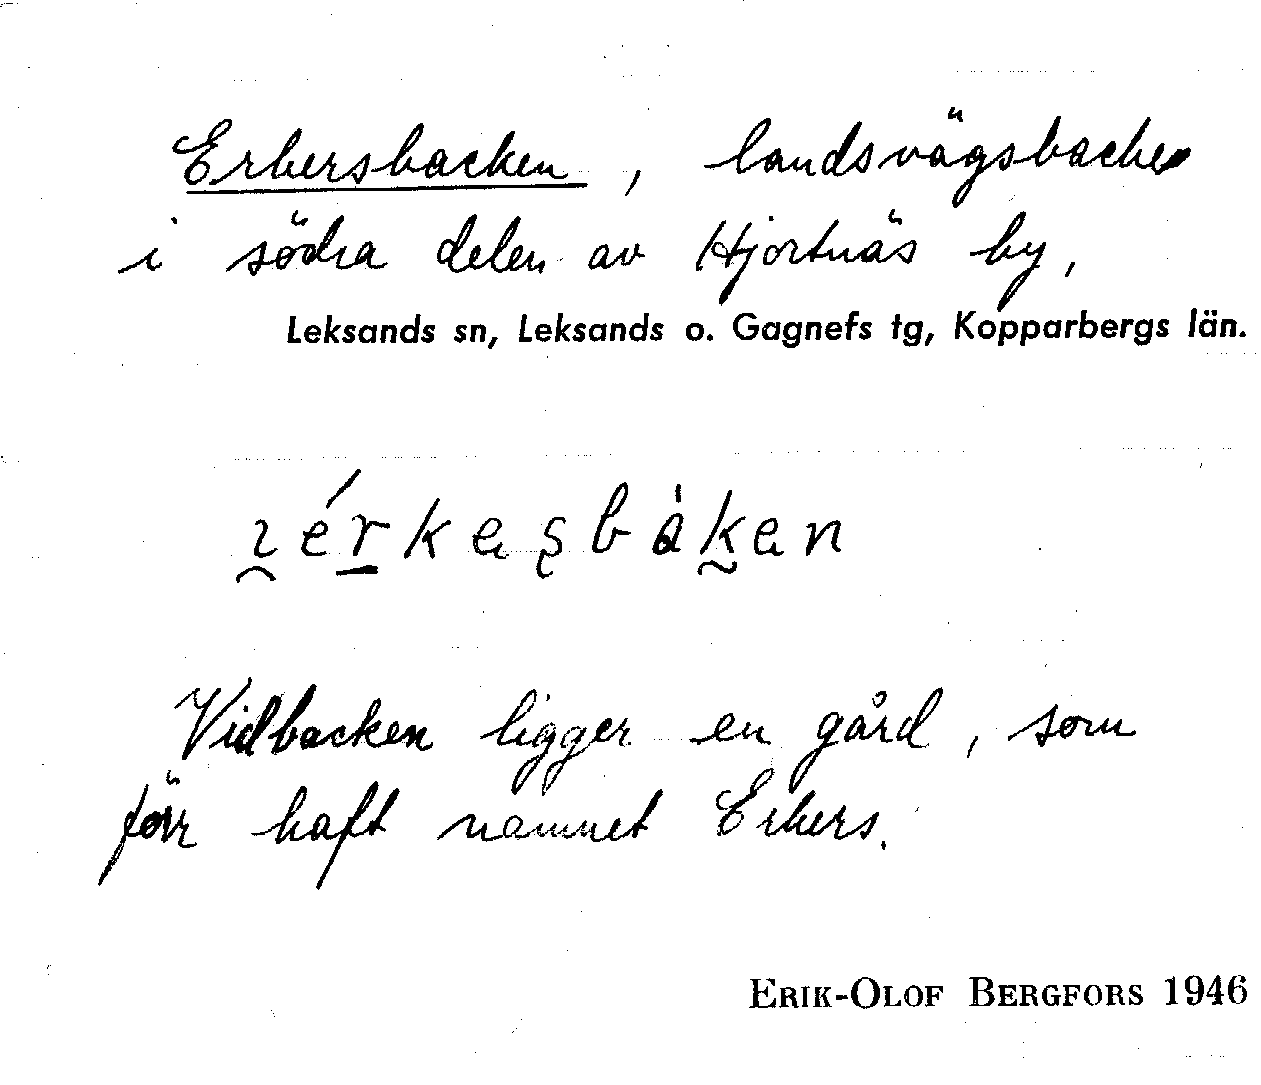 Erkersbacken, landsvägsbacke
i södra delen av Hjortnäs by,
Leksands sn, Leksands o. Gagnefs tg, Kopparbergs län.
Vid backen ligger en gård, som
förr haft namnet Erkers.
ERIK-OLOF BERGFORS 1946